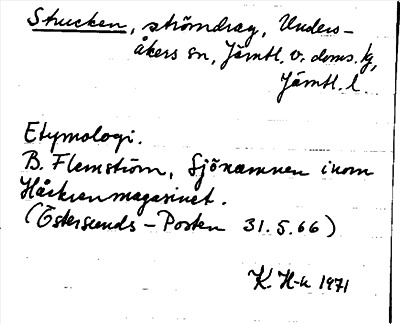 Strucken, strömdrag, Unders-
åkers sn, Jämtl. v. doms. tg,
Jämtl. l.
Etymologi.
B. Flemström, Sjönamnen inom
Håckrenmagasinet.
(Östersunds-Posten 31.5.66)
K. H-k 1971